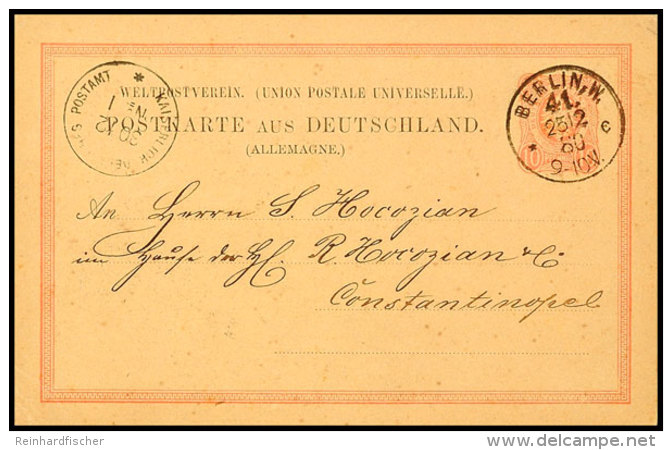 WELTPOSTVEREIN. (UNION POSTALE UNIVERSELLE.)
POSTKARTE AUS DEUTSCHLAND.
(ALLEMAGNE.)
KAISERLICH POSTAMT
BERLIN, W.
41.
25/2
80
9-10V.
10
An Herrn S. Hocozian
im Hause der HH. R. Hocozian & Co.
Constantinopel
Reinhardfischer
© www.delcampe.net